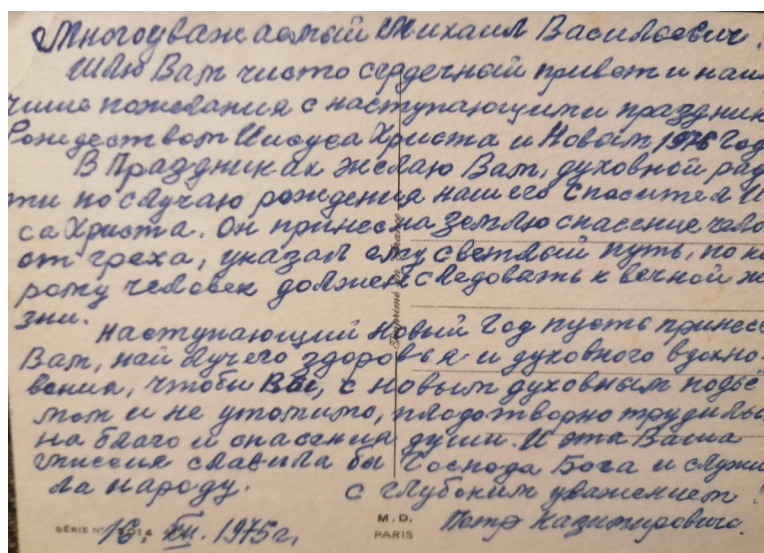 Многоуважаемый Михаил Васильевич.
Шлю Вам чисто сердечный привет и наи
чшие пожелания с наступающими праздник
Рождеством Иисуса Христа и Новым 1976 Год
В Праздниках желаю Вам, духовной рад
ти по случаю рождения нашего Спасителя И
са Христа. Он принес на землю спасение чело
от греха, указал ему светлый путь, по ко
рому человек должен следовать к вечной жи
зни.
Наступающий Новый Год пусть принесе
Вам, най лучего здоровья и духовного вдохно-
вения, чтобы Вы, с новым духовным подъё
мом и не утомимо, плодотворно трудились
на благо и спасения души. И эта Ваша
миссия славила бы Господа Бога и служи
ла народу.
с глубоким уважением!
16. XII. 1975г. Петр Казимирович.
SÉRIE N° 014
M. D.
PARIS